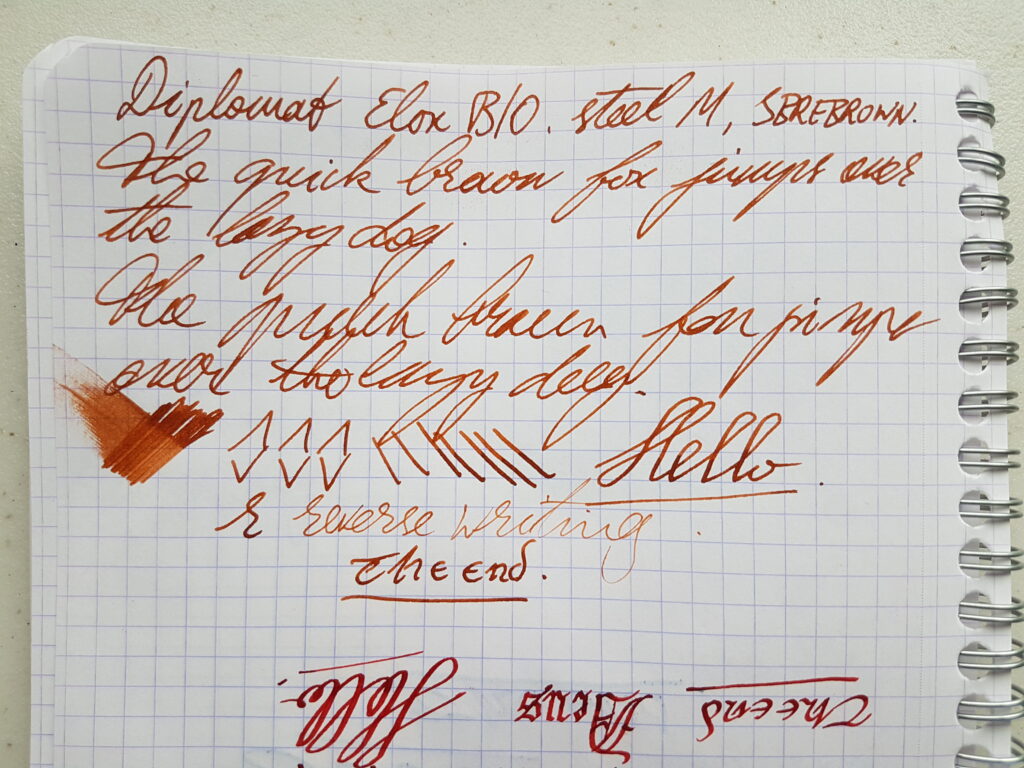 Diplomat Elox B/O. steel M, SBREBROWN.
The quick brown fox jumps over
the lazy dog.
The quick brown fox jumps
over the lazy dog.
Hello.
& reverse writing.
The end.
Hello.
The end